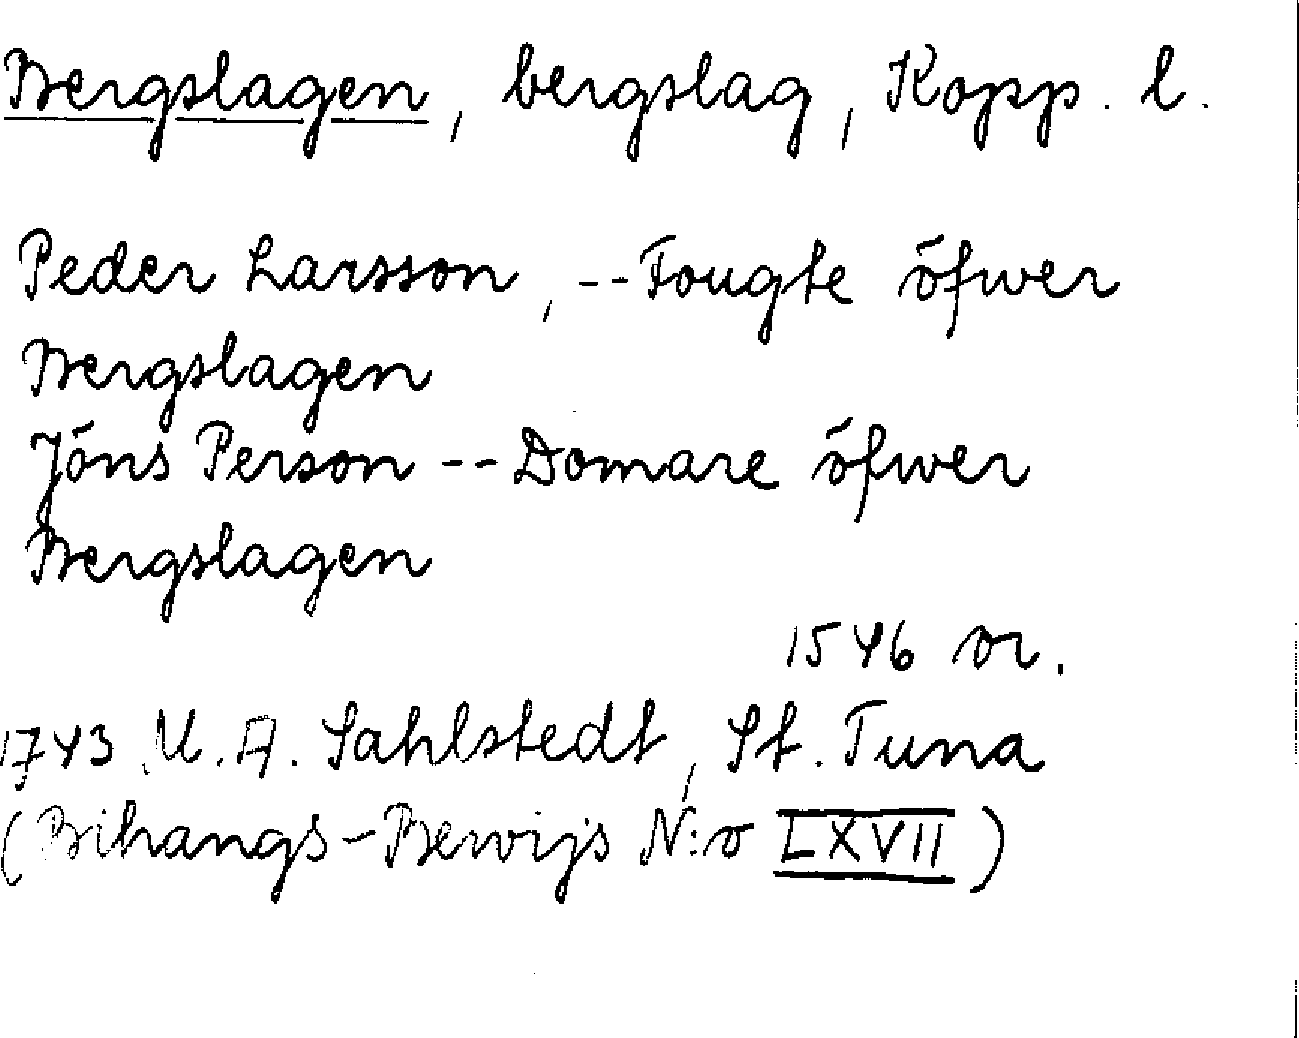 Bergslagen, bergslag, Kopp. l.
Peder Larsson, -- Fougte öfwer
Bergslagen
Jöns Person -- Domare öfwer
Bergslagen
1546 or.
1743 U. A. Sahlstedt, St. Tuna
(Bihangs-Bewijs N:o LXVII)